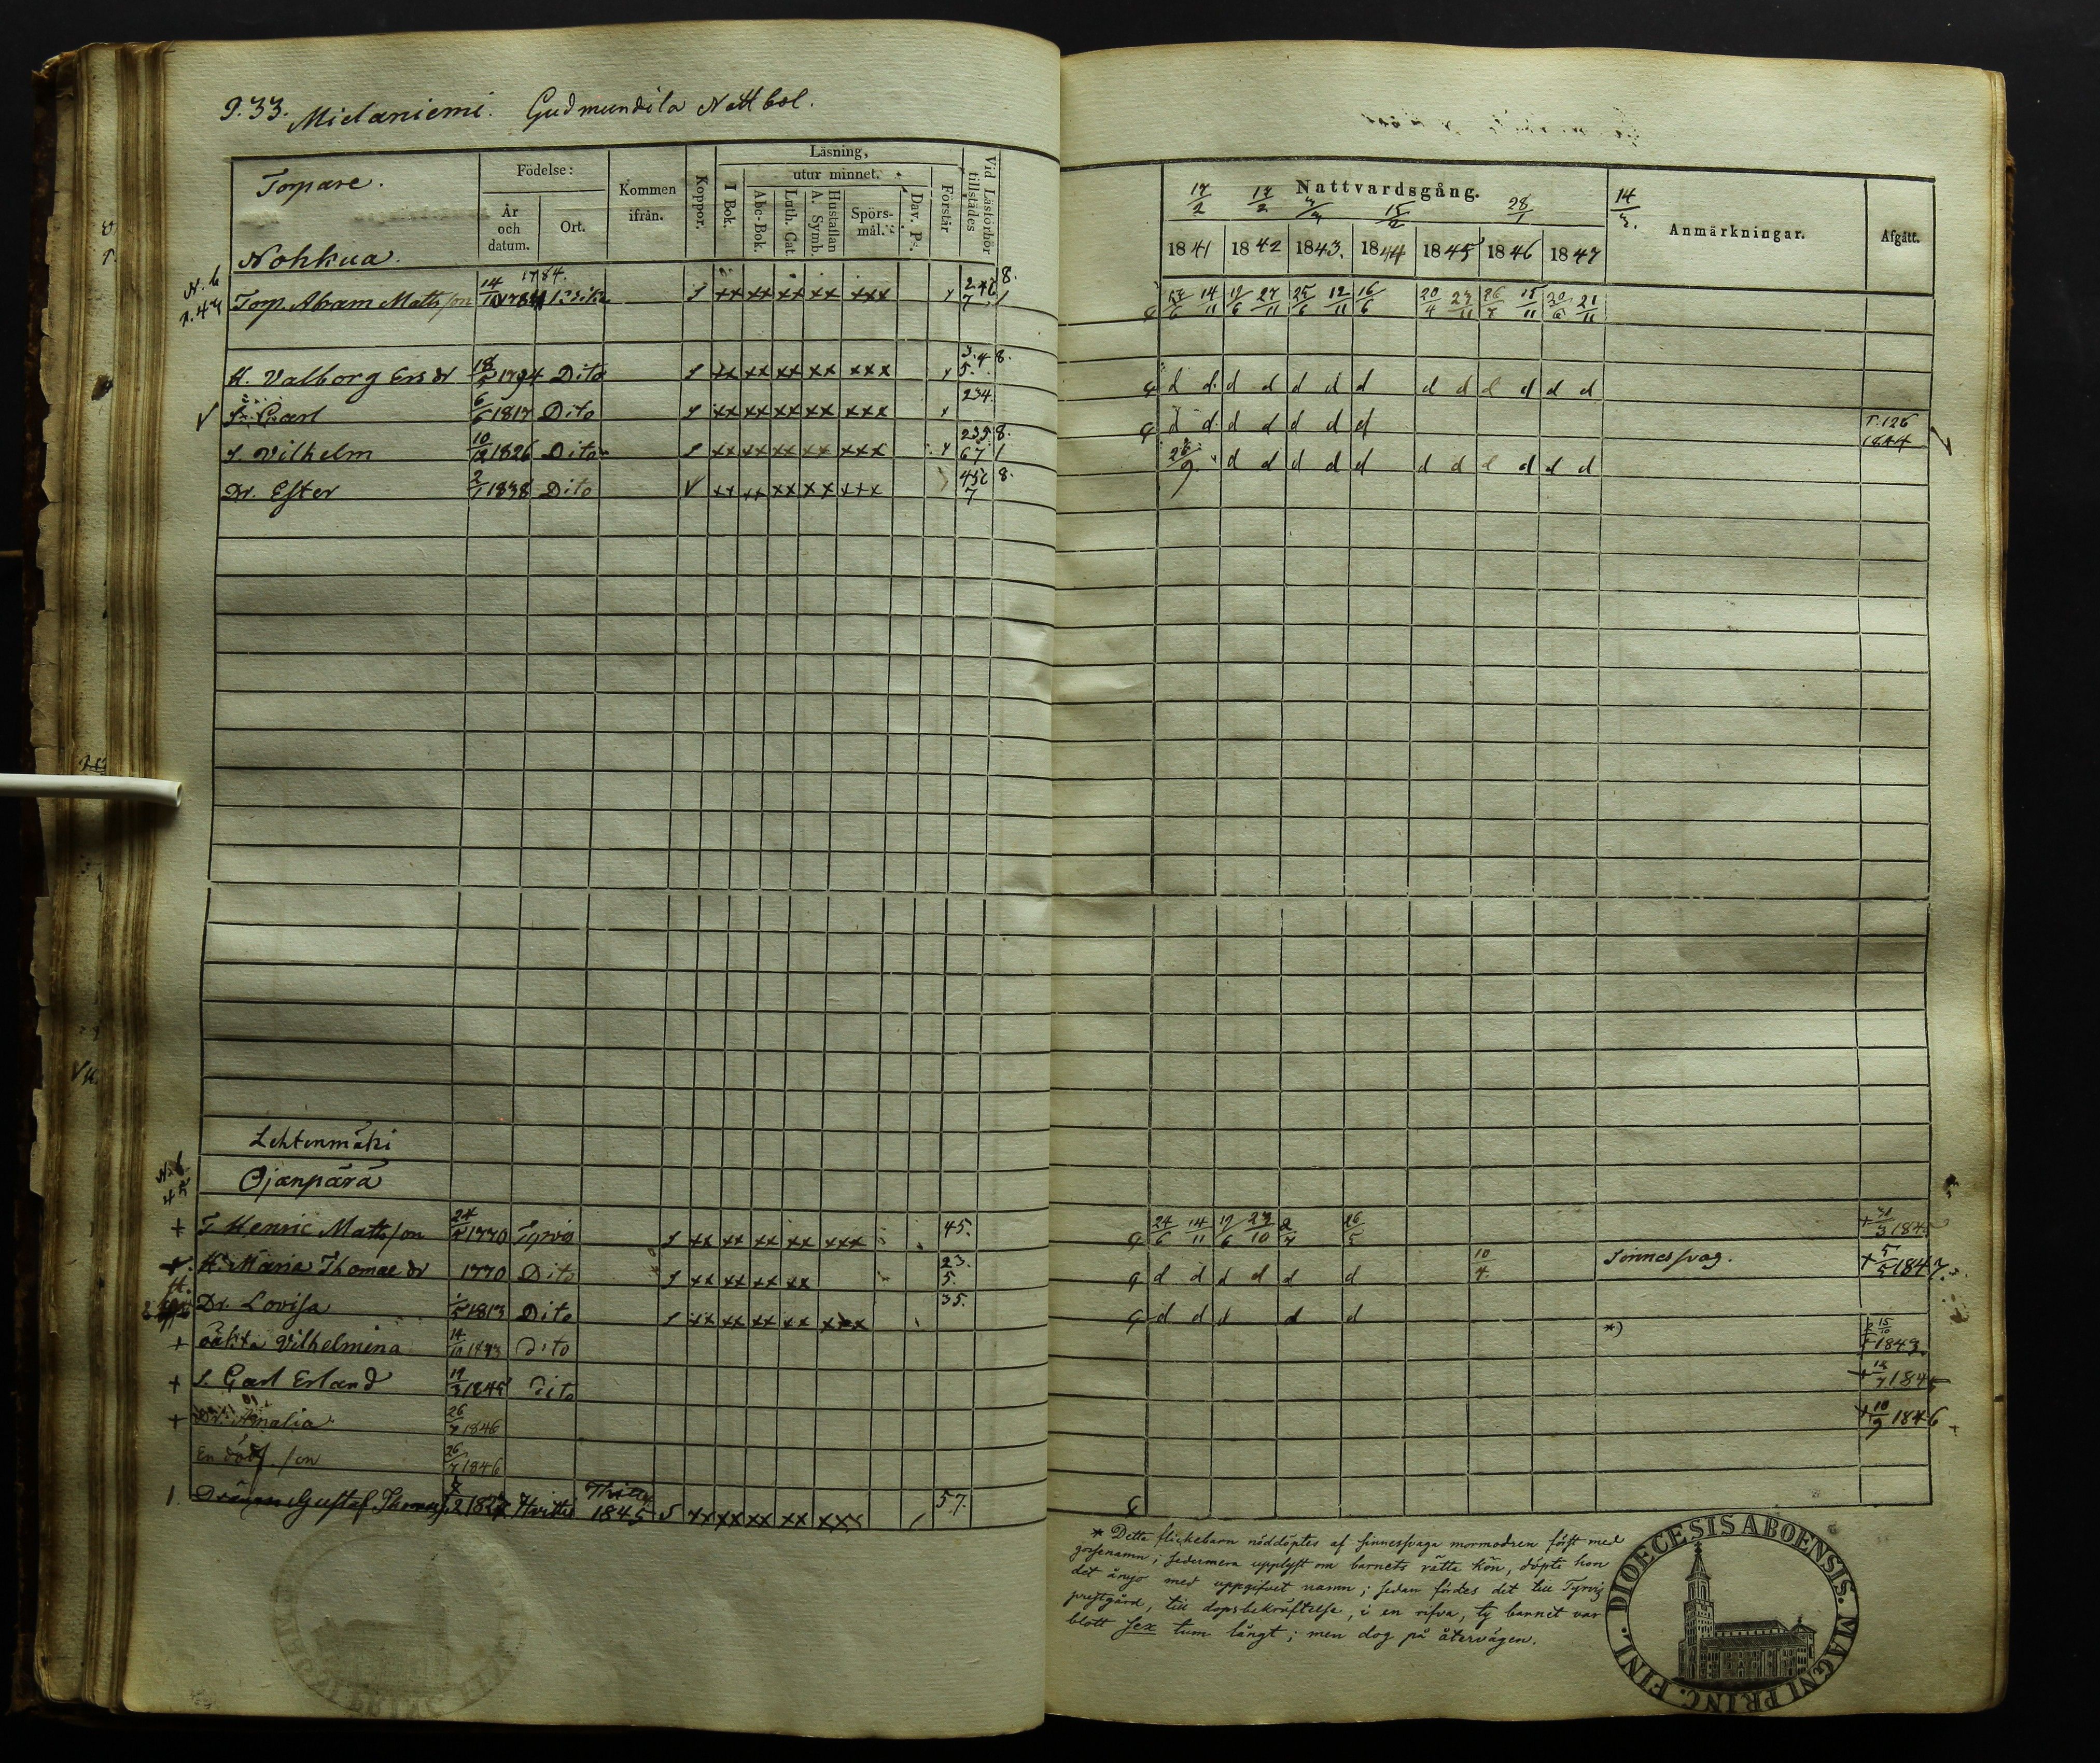 P. 33. Mielaniemi. Gudmundila Nattbol.
Torpare.
Nohkua.
Födelse:
År och datum.
Ort.
Kommen ifrån.
Koppor.
Läsning,
I Bok.
utur minnet.
Abc-Bok.
Luth. Cat.
Hustaflan A. Symb.
Spörs-mål.
Dav. Ps.
Förstår
Vid Läsförhör tillstädes
Nattvardsgång.
17/2 17/2 15/2 28/1 14/3.
1841 1842 1843. 1844 1845 1846 1847
Anmärkningar.
Afgått.
N. 6 Torp. Abram Matsson 14 1784
24/6 14/11 12/6 27/11 25/6 12/11 16/6 20/4 23/11 26/7 15/11 30/6 21/11
H. Valborg Ersdr 18/5 1794 Dito s xx xx xx xx xxx 3.4 8. 5.
d d. d d d d d d d d d d d
S. Carl 6/6 1817 Dito s xx xx xx xx xxx x 234.
d d. d d d d d P. 126 1844
S. Vilhelm 10/12 1826 Dito s xx xx xx xx xxx 235 8. 67 1
26/9 d d d d d d d d d d d
Dr. Ester 2/1 1838 Dito v xx xx xx xx xxx 456 8. 7
Lehtenmäki
N. 6 45
Ojanpärä
+ T. Henric Matsson 24/5 1770 Tyrvis s xx xx xx xx xxx 45.
24/6 14/11 12/6 23/10 2/7 26/5
H. Maria Thomædr 1770 Dito s xx xx xx xx 23. 5.
d d d d d d 10/4 Sinnessvag. + 5/5 1847.
Dr. Lovisa 1/5 1813 Dito s xx xx xx xx xxx 35.
d d d d d
+ oäkta Vilhelmina 14/10 1843 Dito
*) + 15/10 1843.
+ S. Carl Erland 19/3 1845 Dito
1845
+ Dr. Amalia 26/7 1846
+ 10/9 1846
En dödf. son 26/7 1846
1. Drängen Gustaf Thomass. 1827 Hvittis 1845 s xx xx xx xx xxx 57.
* Detta flickebarn nöddöptes af sinnessvaga mormodren först med
gossenamn; sedermera upplyst om barnets rätta kön, döpte hon
det ånyo med uppgifvet namn; sedan fördes det till Tyrvis
prestgård, till dopsbekräftelse, i en rifva, ty barnet var
blott sex tum långt; men dog på återvägen.
DIOECESIS ABOENSIS. MAGNI PRINC. FINL.